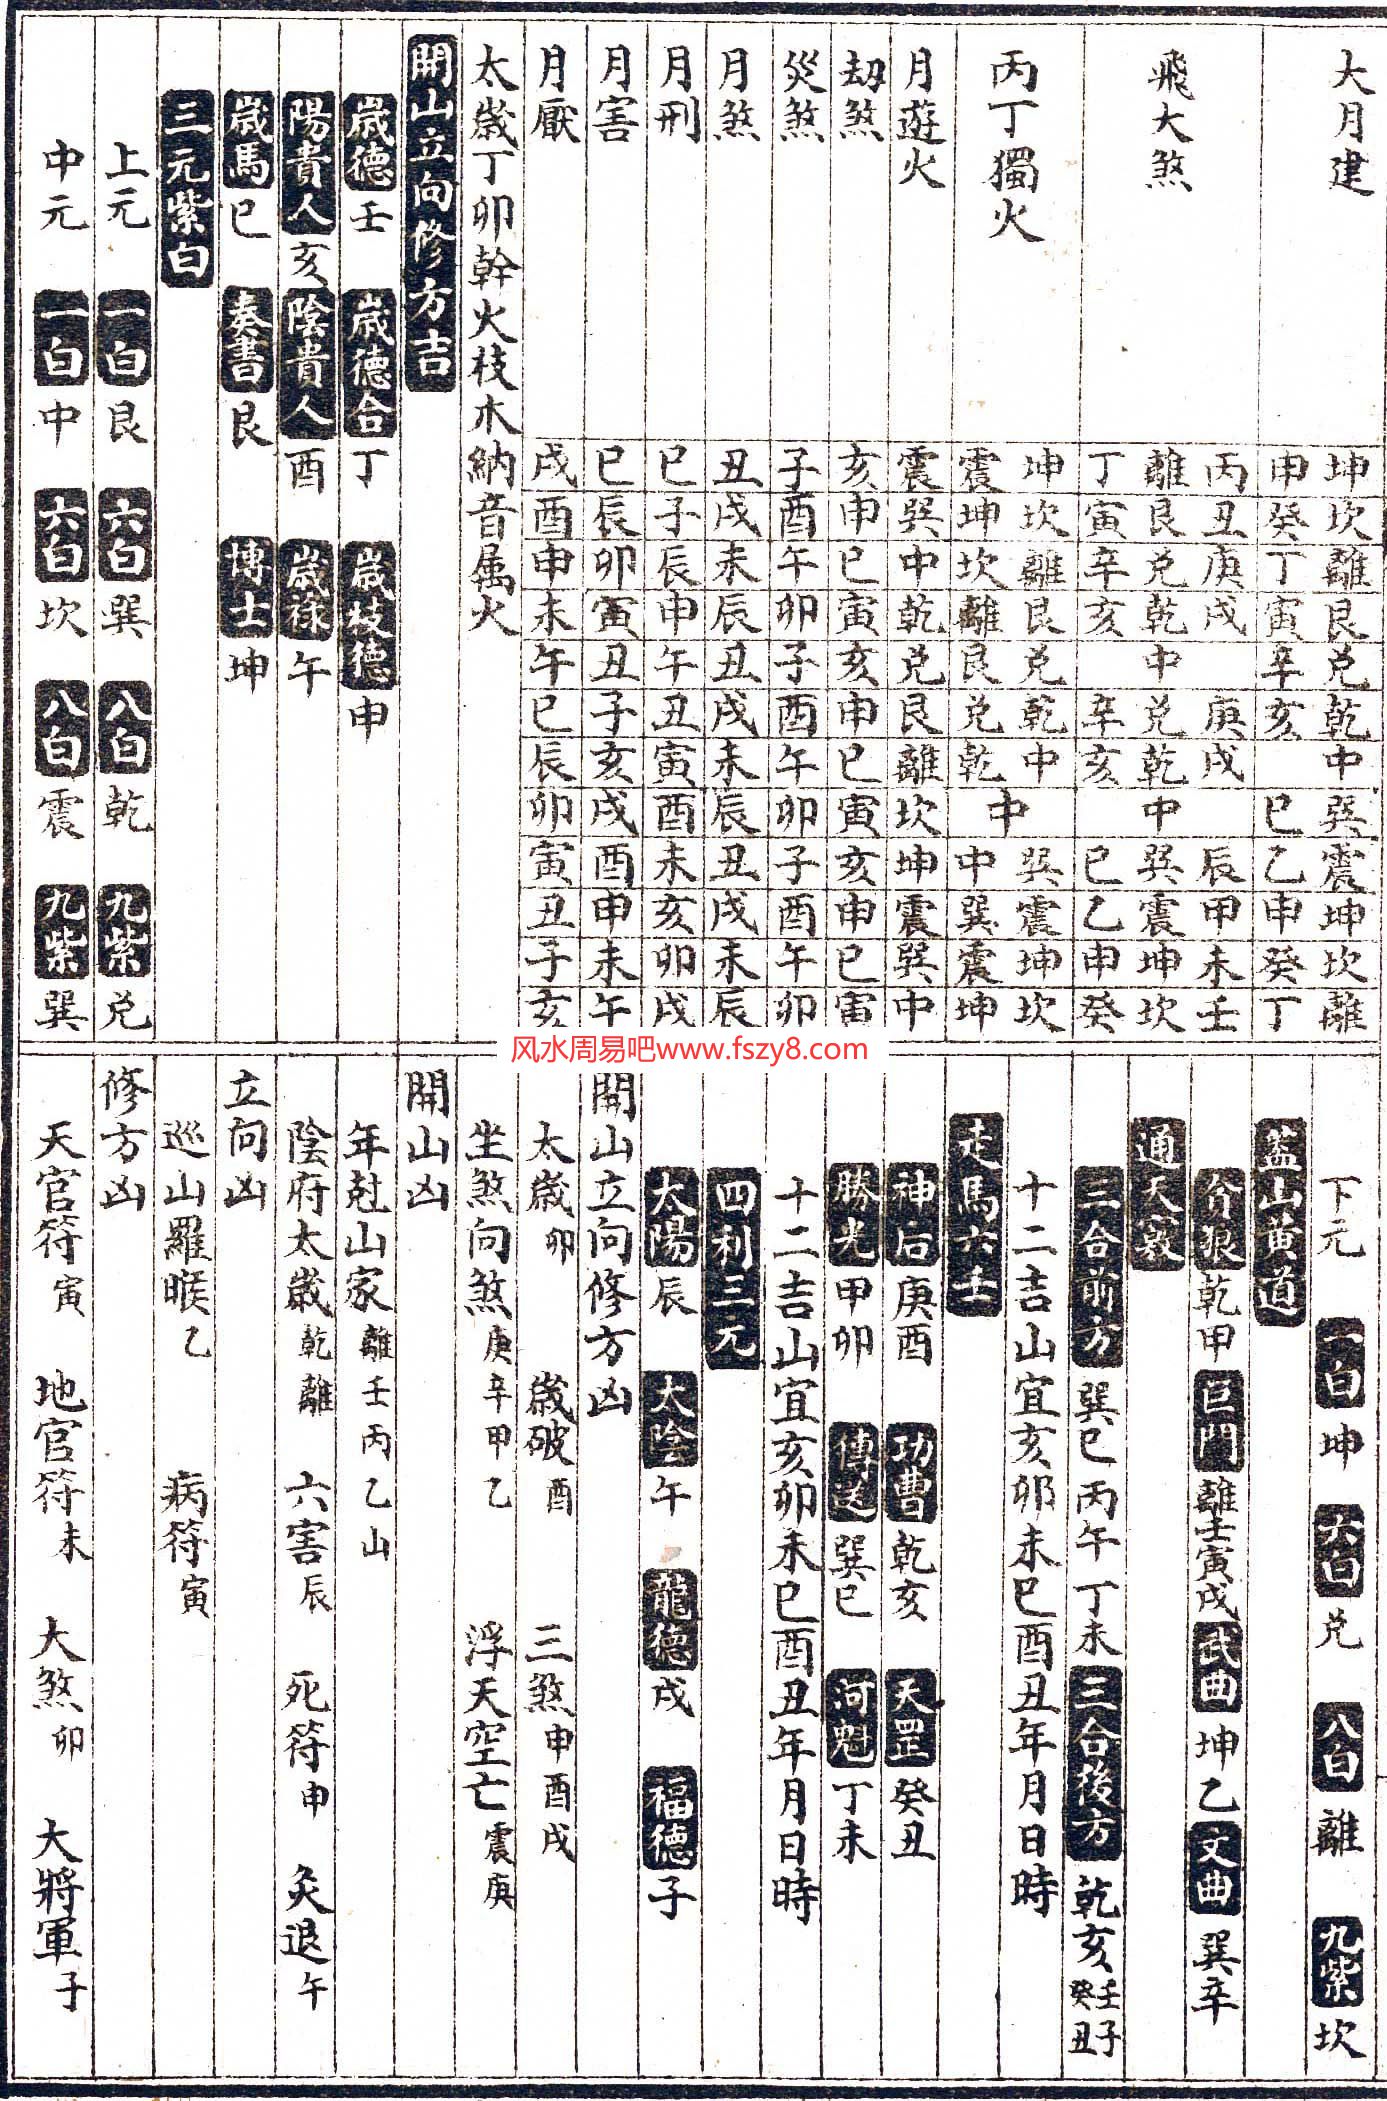 大月建
坤坎離艮兑乾中巽震坤坎離
申癸丁寅辛亥巳乙申癸丁
飛大煞
丙丑庚戌庚戌辰甲未壬
離艮兑乾中兑乾中巽震坤坎
丁寅辛亥辛亥巳乙申癸
丙丁獨火
坤坎離艮兑乾中中巽震坤坎
震坤坎離艮兑乾中巽震坤
月遊火 震巽中乾兑艮離坎坤震巽中
劫煞 亥申巳寅亥申巳寅亥申巳寅
災煞 子酉午卯子酉午卯子酉午卯
月煞 丑戌未辰丑戌未辰丑戌未辰
月刑 巳子辰申午丑寅酉未亥卯戌
月害 巳辰卯寅丑子亥戌酉申未午
月厭 戌酉申未午巳辰卯寅丑子亥
太歲丁卯幹火枝木納音属火
開山立向修方吉
歲德壬 歲德合丁 歲枝德申
陽貴人亥 陰貴人酉 歲祿午
歲馬巳 奏書艮 博士坤
三元紫白
上元 一白艮 六白巽 八白乾 九紫兑
中元 一白中 六白坎 八白震 九紫巽
风水周易吧www.fszy8.com
下元 一白坤 六白兑 八白離 九紫坎
蓋山黃道
貪狼乾甲 巨門離壬寅戌 武曲坤乙 文曲巽辛
通天竅
三合前方巽巳丙午丁未 三合後方乾亥壬子癸丑
十二吉山宜亥卯未巳酉丑年月日時
走馬六壬
神后庚酉 功曹乾亥 天罡癸丑
勝光甲卯 傳送巽巳 河魁丁未
十二吉山宜亥卯未巳酉丑年月日時
四利三元
太陽辰 太陰午 龍德戌 福德子
開山立向修方凶
太歲卯 歲破酉 三煞申酉戌
坐煞向煞庚辛甲乙 浮天空亡震庚
開山凶
年尅山家離壬丙乙山
陰府太歲乾離 六害辰 死符申 灸退午
立向凶
巡山羅㬋乙 病符寅
修方凶
天官符寅 地官符未 大煞卯 大將軍子